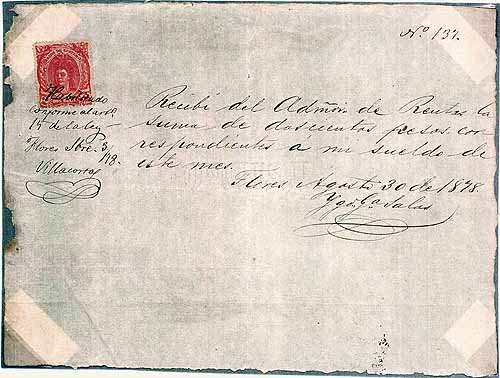 Nº 137.
Habilitado
conforme al artº
15 de la ley
Flores Sbre. 3/78.
Villacorta
Recibí del Admōr. de Rentas la
suma de doscientos pesos cor-
respondientes a mi sueldo de
este mes.
Flores Agosto 30 de 1878.
Salas